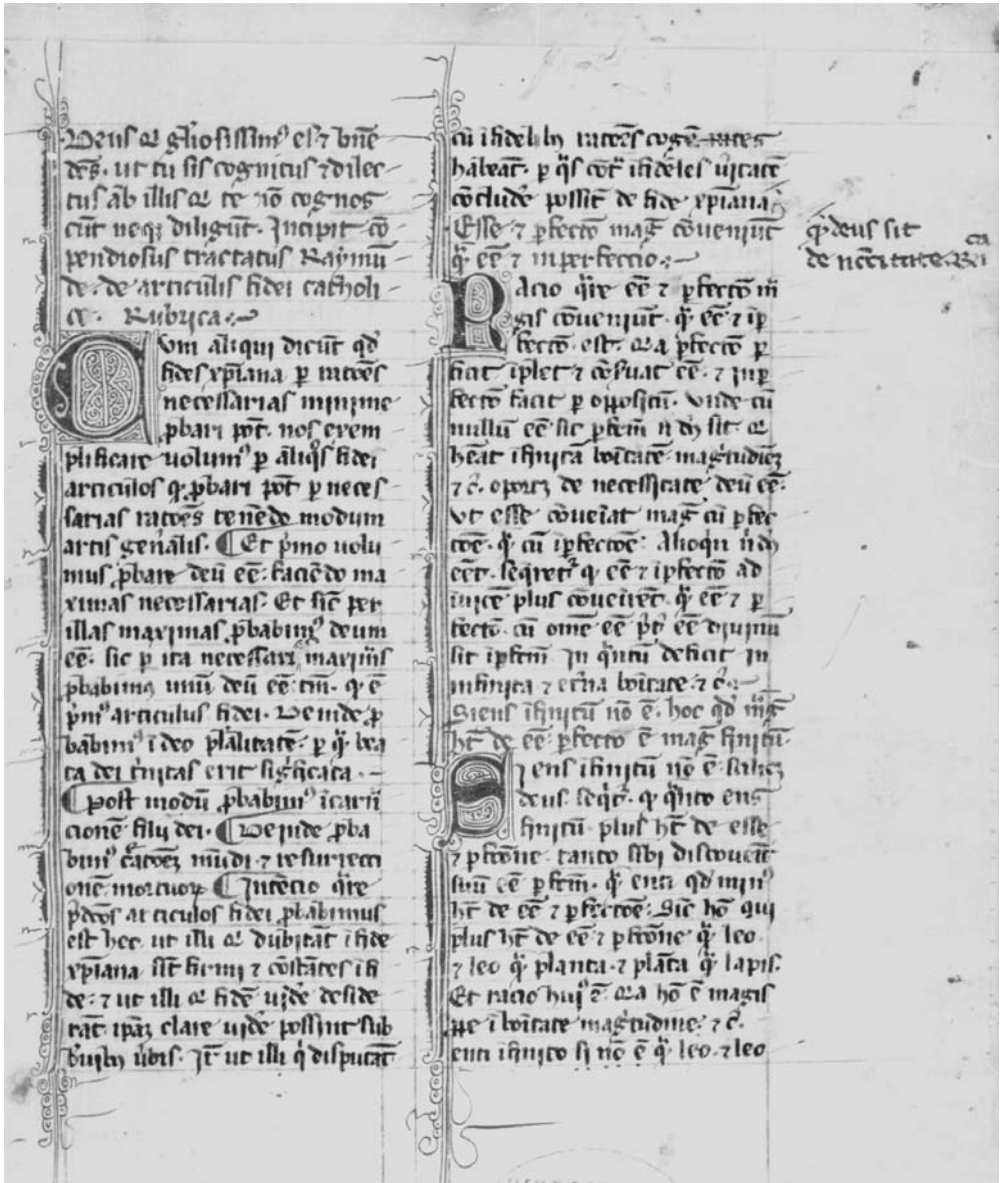 Deus q̃ gl̃iosissimꝰ es ⁊ bñe
dẽs. ut tu sis cognitus ⁊ dilec
tus ab illis q̃ te nõ cognos
cũt neqꝫ diligũt. Incipit cõ
pendiosus tractatus Raymũ
di. de articulis fidei catholi
ce. Rubrica.
Cum aliqui dicũt qđ
fides xp̃iana ꝑ racões
necessarias minime
ꝓbari põt. nos exem
plificare uolumꝰ ꝑ aliq̃s fidei
articulos q̃ ꝓbari põt ꝑ neces
sarias racões tenẽdo modum
artis geñalis. ¶ Et pͥmo uolu
mus ꝓbare deũ eẽ. faciẽdo ma
ximas necessarias. Et sic̃ per
illas maximas ꝓbabimꝰ deum
eẽ. sic ꝑ ita necessariˢ maximis
ꝓbabimꝰ unũ deũ eẽ tm̃. q̃ ẽ
pͥmꝰ articulus fidei. Deinde ꝓ
babimꝰ ĩ deo pl̃alitatẽ. ꝑ q̃ bea
ta dei tͥnitas erit sigͥficata.
¶ Post modũ ꝓbabimꝰ ĩcarñ
cionẽ filii dei. ¶ Deinde ꝓba
bimꝰ c̃atõeꝫ mũdi ⁊ resurrecti
onẽ mortuoꝝ ¶ Intẽcio q̃re
p̃dc̃os articulos fidei ꝓbabimus
est hec. ut illi q̃ dubitãt ĩ fide
xp̃iana sĩt firmi ⁊ cõstãtes ĩ fi
de. ⁊ ut illi q̃ fidẽ uiđe deside
rãt ip̃aꝫ clare uiđe possint sub
b̃uibꝫ ũbis. Iť ut illi q̃ disputãt
cũ ĩfidelibꝫ racões cogẽtes
habeãt. ꝑ q̃s cõtͣ ĩfideles ũitatẽ
cõcluđe possĩt de fide xp̃iana.
Esse ⁊ ꝑfectõ mag̃ cõueniũt
q̃ eẽ ⁊ inperfectio.
Racio q̃re eẽ ⁊ ꝑfectõ m̃
gis cõueniũt. q̃ eẽ ⁊ ĩꝑ
fectõ. est. q̃a ꝑfectõ ꝑ
ficit ĩplet ⁊ cõs̃uat eẽ. ⁊ inꝑ
fectõ facit ꝑ oppositũ. Vnde cũ
nullũ eẽ sic ꝑfctm̃ ñ dꝫ sit q̃
heãt ĩfinita boĩtatẽ. mag̃tudiẽꝫ
⁊ c̃. oporꝫ de necessitate deũ eẽ.
Vt esse cõueĩat mag̃ cũ ꝑfec
tõe. q̃ cũ ĩꝑfectõe. Alioq̃n ñ dꝫ
eẽt. seq̃retͬ q̃ eẽ ⁊ ĩꝑfectõ ad
inuicẽ plus cõueirẽt. q̃ eẽ ⁊ ꝑ
fectõ. cũ om̃e eẽ p̃t̃ eẽ diuinũ
sit ĩꝑfctm̃ In q̃ntũ deficit in
infinita ⁊ et̃na boĩtate. ⁊ c̃.
Si ens ĩfinitũ nõ ẽ. hoc qđ mag̃
ht̃ de eẽ ꝑfecto ẽ mag̃ finitũ.
Si ens ĩfinitũ nõ ẽ. salicꝫ
deus. seq̃tͬ. q̃ q̃nto ens
finitũ plus ht̃ de esse
⁊ ꝑfcõne. tanto sibi discoueĩt
suũ eẽ ꝑfctm̃. q̃ enti qđ minꝰ
ht̃ de eẽ ⁊ ꝑfectõe. Sic̃ hõ qui
plus ht̃ de eẽ ⁊ ꝑfcõne q̃ leo.
⁊ leo q̃ planta. ⁊ plãta q̃ lapis.
Et racio huiꝰ ẽ. q̃a hõ ẽ magis
ꝓpe ĩ boĩtate magͥtudine. ⁊ c̃.
enti ĩfinito si nõ ẽ q̃ leo. ⁊ leo
q̃ deus sit
de nc̃citate.